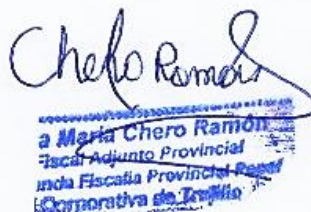 Chero Ramón
a María Chero Ramón
Fiscal Adjunto Provincial
nda Fiscalía Provincial Penal
Corporativa de Trujillo